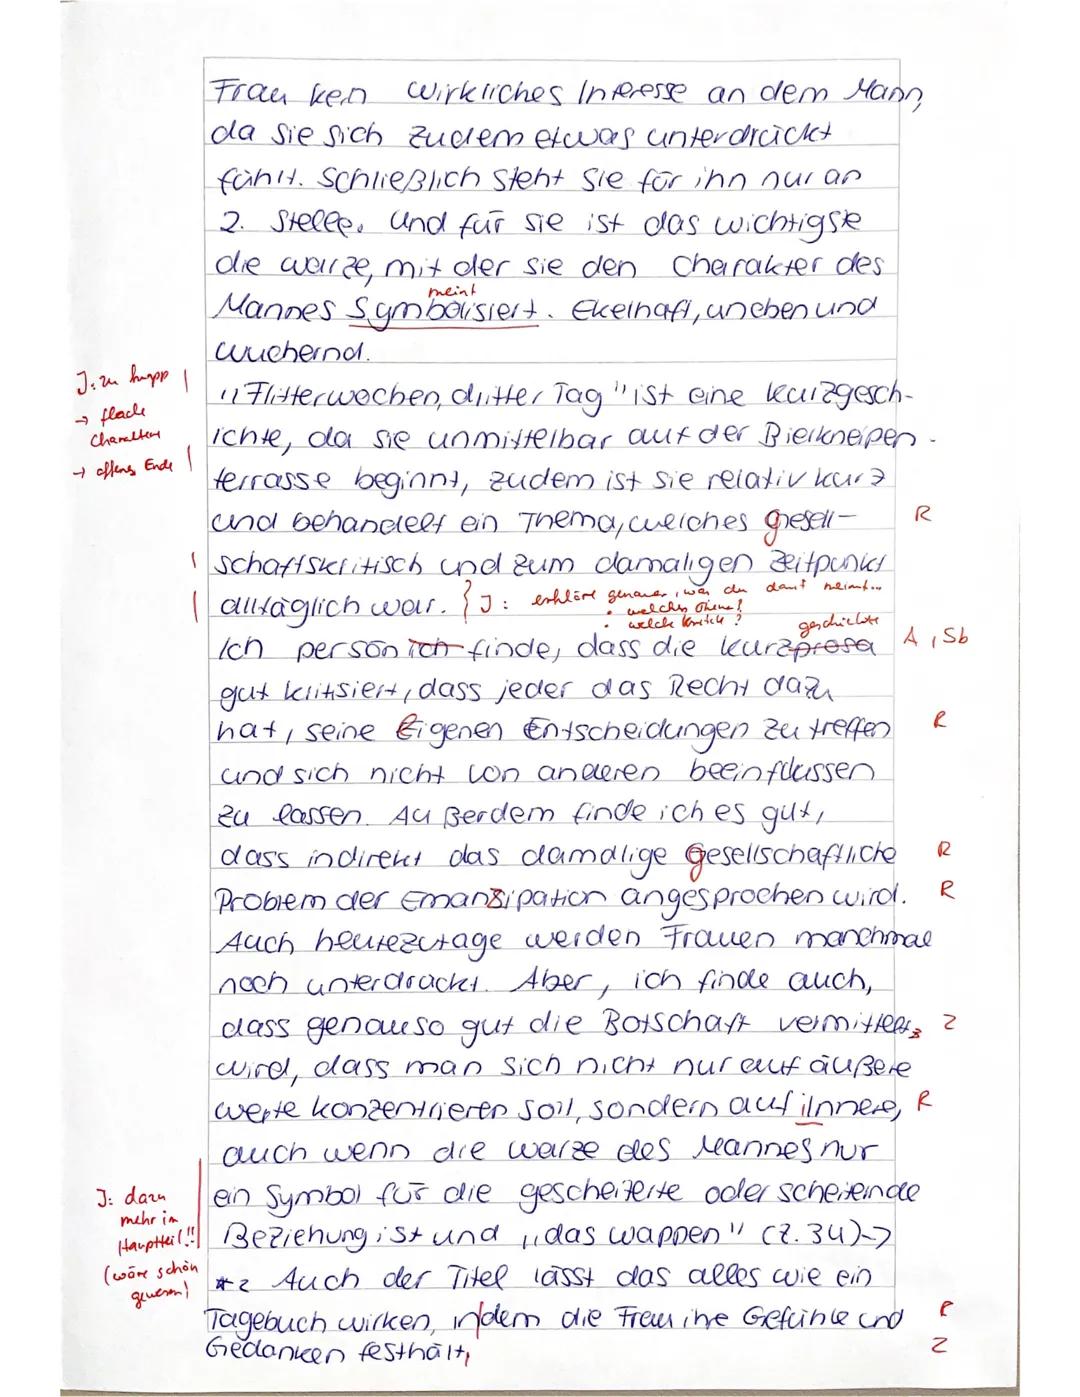 Frau kein wirkliches Interesse an dem Mann,
da sie sich zudem etwas unterdrückt
fühlt. Schließlich steht sie für ihn nur an
2. Stelle. Und für sie ist das wichtigste
die warze, mit der sie den Charakter des
meint
Mannes Symbolisiert. Ekelhaft, uneben und
wuchernd.
J: zu knapp
→ flache
Charaktere
→ offenes Ende
"Flitterwochen, dritter Tag" ist eine kurzgesch-
ichte, da sie unmittelbar auf der Bierkneipen-
terrasse beginnt, zudem ist sie relativ kurz
und behandelt ein Thema, welches gesell- R
schaftskritisch und zum damaligen Zeitpunkt
alltäglich war. } J: erkläre genauer, was du damit meinst...
• welches Thema?
• welche Kritik?
geschichte
Ich persönlich finde, dass die kurzprosa A, Sb
gut kritisiert, dass jeder das Recht dazu
hat, seine Eigenen Entscheidungen zu treffen R
und sich nicht von anderen beeinflussen
zu lassen. Außerdem finde ich es gut,
dass indirekt das damalige gesellschaftliche R
Problem der Emanzipation angesprochen wird. R
Auch heutezutage werden Frauen manchmal
noch unterdrückt. Aber, ich finde auch,
dass genauso gut die Botschaft vermittelt, Z
wird, dass man sich nicht nur auf äußere
werte konzentrieren soll, sondern auf innere, R
auch wenn die warze des Mannes nur
J: dazu
mehr im
Hauptteil!!
(wäre schön
gewesen)
ein Symbol für die gescheiterte oder scheiternde
Beziehung ist und "das wappen" (Z. 34) ->
*2 Auch der Titel lässt das alles wie ein
Tagebuch wirken, in|dem die Frau ihre Gefühle und R
Gedanken festhält, Z